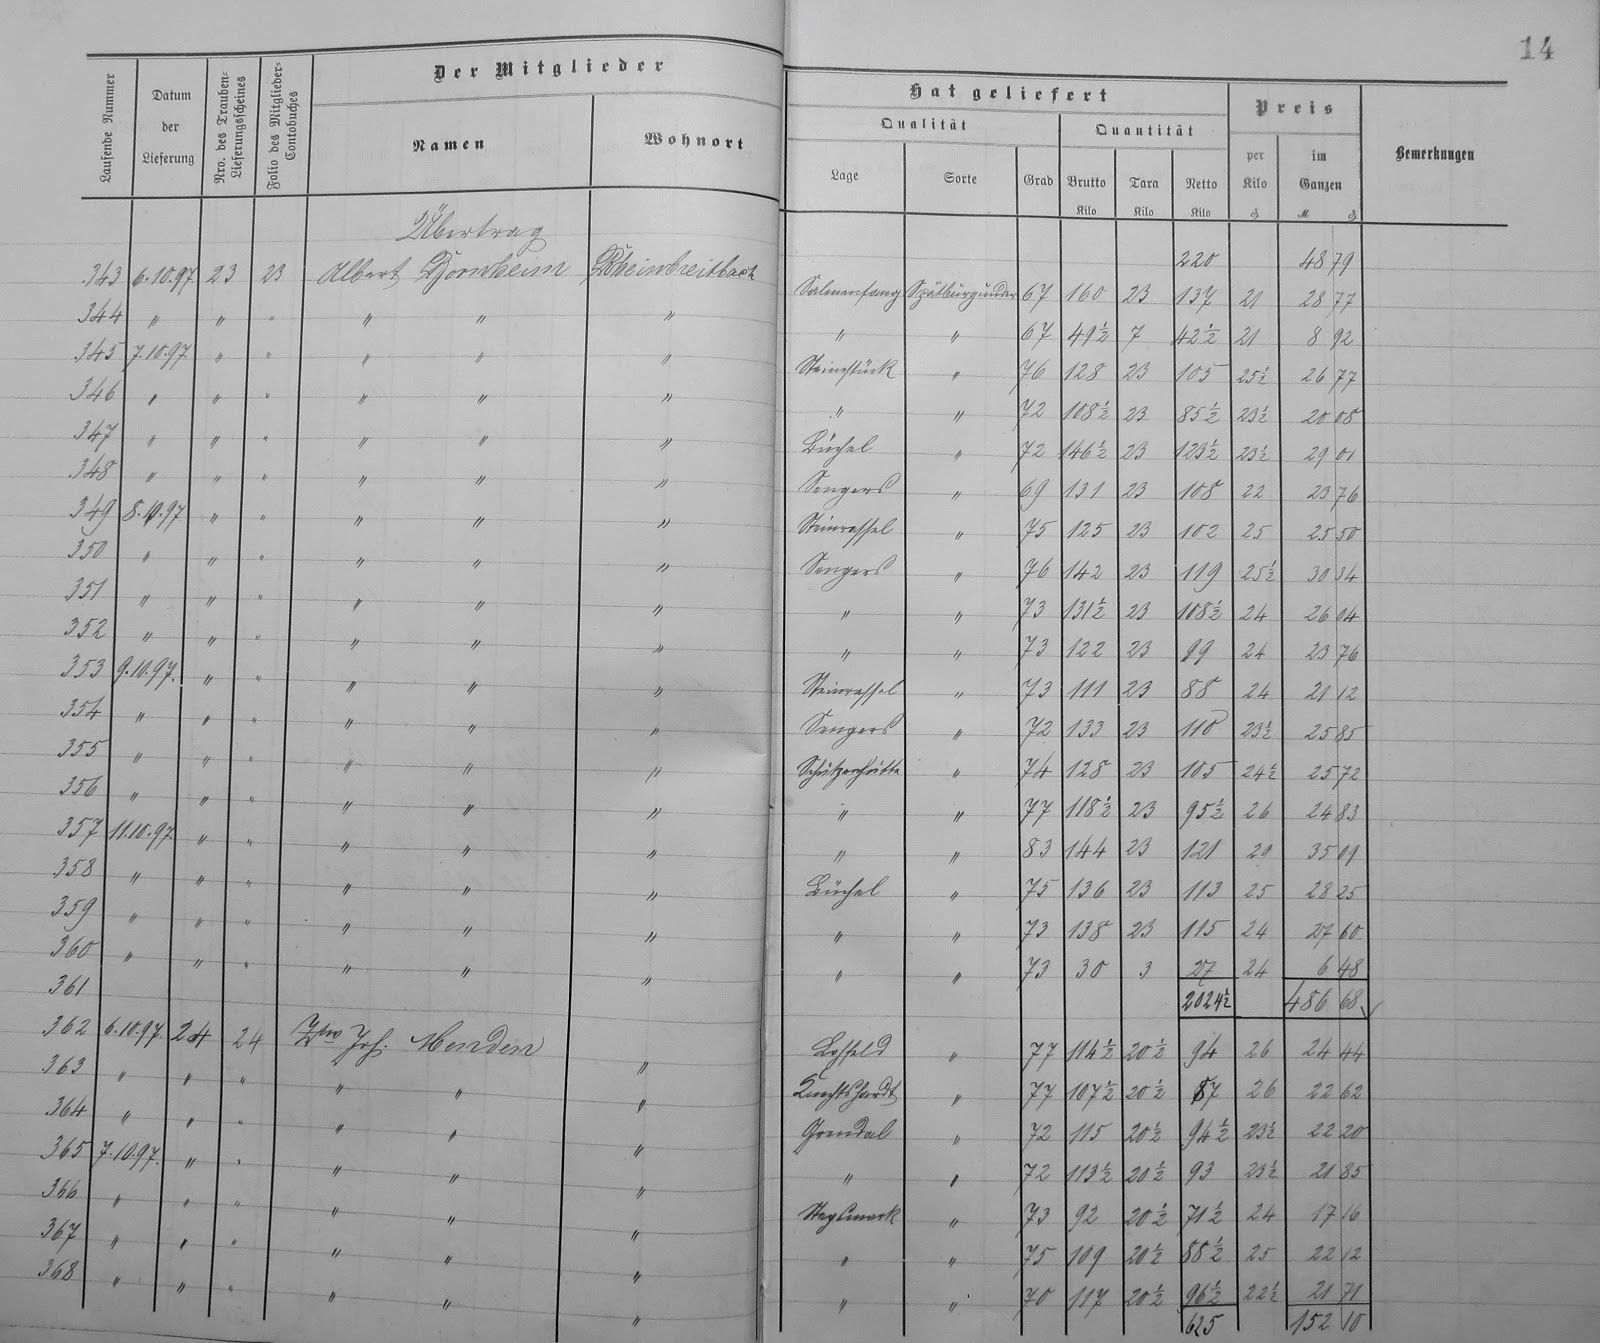 14
Der Mitglieder
Hat geliefert
Preis
Bemerkungen
Laufende Nummer
Datum der Lieferung
Nro. des Trauben-Lieferungsscheines
Folio des Mitglieder-Contobuches
Namen
Wohnort
Qualität
Quantität
Lage
Sorte
Grad
Brutto Kilo
Tara Kilo
Netto Kilo
per Kilo ₰
im Ganzen M ₰
Übertrag 220 48 79
343 6.10.97 23 23 Albert Hornheim Rheinbreitbach Salmenfang Spätburgunder 67 160 23 137 21 28 77
344 " " " " " " " " 67 49½ 7 42½ 21 8 92
345 7.10.97 " " " " " Steinstück " 76 128 23 105 25½ 26 77
346 " " " " " " " " 72 108½ 23 85½ 23½ 20 08
347 " " " " " " Büchel " 72 146½ 23 123½ 23½ 29 01
348 " " " " " " Sengers " 69 131 23 108 22 23 76
349 8.10.97 " " " " " Steinrassel " 75 125 23 102 25 25 50
350 " " " " " " Sengers " 76 142 23 119 25½ 30 34
351 " " " " " " " " 73 131½ 23 108½ 24 26 04
352 " " " " " " " " 73 122 23 99 24 23 76
353 9.10.97. " " " " " Steinrassel " 73 111 23 88 24 21 12
354 " " " " " " Sengers " 72 133 23 110 23½ 25 85
355 " " " " " " " 74 128 23 105 24½ 25 72
356 " " " " " " " " 77 118½ 23 95½ 26 24 83
357 11.10.97. " " " " " " " 83 144 23 121 29 35 09
358 " " " " " " Büchel " 75 136 23 113 25 28 25
359 " " " " " " " " 73 138 23 115 24 27 60
360 " " " " " " " " 73 30 3 27 24 6 48
361 2024½ 486 68
362 6.10.97. 24 24 Wwe Jos. Menden " " 77 114½ 20½ 94 26 24 44
363 " " " " " " " 77 107½ 20½ 87 26 22 62
364 " " " " " " " 72 115 20½ 94½ 23½ 22 20
365 7.10.97. " " " " " " " 72 113½ 20½ 93 23½ 21 85
366 " " " " " " " 73 92 20½ 71½ 24 17 16
367 " " " " " " " " 75 109 20½ 88½ 25 22 12
368 " " " " " " " " 70 117 20½ 96½ 22½ 21 71
625 152 10